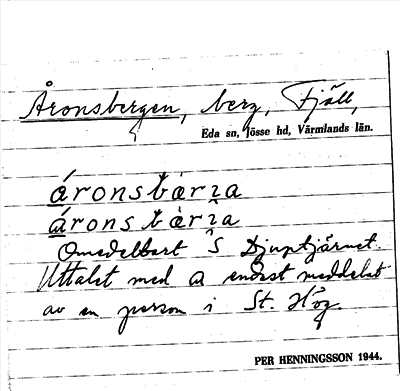 Åronsbergen, berg, Fjäll,
Eda sn, Jösse hd, Värmlands län.
áronsbàrıa
áronsbàrîa
Omedelbart S Djuptjärnet.
Uttalet med a endast meddelat
av en person i St. Hög.
PER HENNINGSSON 1944.